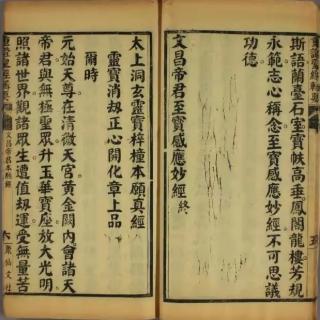 斯語蘭臺石室寶帙高垂鳳閣龍樓芳規
永範志心稱念至寶感應妙經不可思議
功德
文昌帝君至寶感應妙經終
太上洞玄靈寶梓橦本願真經
靈寶消劫正心開化章上品
爾時
元始天尊在清微天宮黃金闕內會諸天
帝君與無極聖眾升玉華寶座放大光明
照諸世界觀諸眾生遭值劫運受無量苦